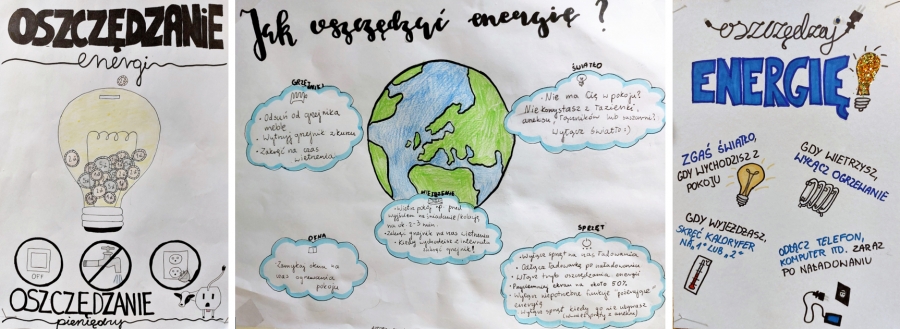 OSZCZĘDZANIE
energii
OFF
OSZCZĘDZANIE
pieniędzy
Jak oszczędzać energię?
GRZEJNIKI
• Odsuń od grzejnika
meble
• Wytrzyj grzejnik z kurzu
• Zakręć na czas
wietrzenia
ŚWIATŁO
• Nie ma Cię w pokoju?
Nie korzystasz z łazienki,
aneksu, tapczników lub suszarni?
Wyłącz światło :)
WIETRZENIE
• Wietrz pokój
przed
wyjściem na śniadanie/kolację
na ok. 2-3 min
• Zakręć grzejnik na czas wietrzenia
• Kiedy wychodzisz z internatu
zakręć grzejnik!
OKNA
Zamykaj okna na
czas ogrzewania
pokoju
SPRZĘT
• Wyłącz sprzęt na czas ładowania
• Odłącz ładowarkę po naładowaniu
• Włącz tryb oszczędzania energii
• Przyciemnij ekran na około 50%
• Wyłącz niepotrzebne funkcje "pożerające"
energię
• Wyłącz sprzęt kiedy go nie używasz
oszczędzaj
ENERGIĘ
ZGAŚ ŚWIATŁO,
GDY WYCHODZISZ Z
POKOJU
GDY WIETRZYSZ,
WYŁĄCZ OGRZEWANIE
GDY WYJEŻDŻASZ,
SKRĘĆ KALORYFER
NA „1" LUB „2"
ODŁĄCZ TELEFON,
KOMPUTER ITD. ZARAZ
PO NAŁADOWANIU